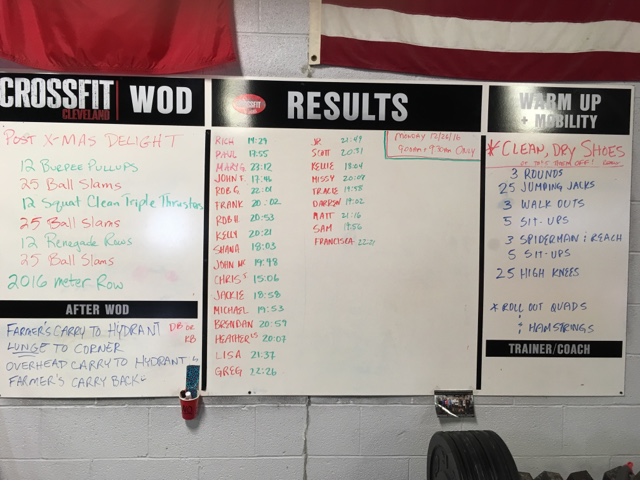 CROSSFIT CLEVELAND WOD
POST X-MAS DELIGHT
12 Burpee Pullups
25 Ball Slams
12 Squat Clean Triple Thrusters
25 Ball Slams
12 Renegade Rows
25 Ball Slams
2016 meter Row
AFTER WOD
FARMER'S CARRY TO HYDRANT DB OR KB.
LUNGE TO CORNER
OVERHEAD CARRY TO HYDRANT
FARMER'S CARRY BACK
CROSSFIT RESULTS
Monday 12/26/16
9:00am + 9:30am Only
RICH 19:29
PAUL 17:55
MARY G 23:12
JOHN T. 17:46
ROB G. 22:01
FRANK 20:02
ROB H 20:53
KELLY 20:21
SHANA 18:03
JOHN Mc 19:48
CHRIS 15:06
JACKIE 18:58
MICHAEL 19:53
BRENDAN 20:59
HEATHER 20:07
LISA 21:37
GREG 22:26
JR 22:49
SCOTT 20:31
KELLIE 18:04
MISSY 20:09
TRACIE 19:58
DARREN 19:02
MATT 21:16
SAM 19:56
FRANCISCA 22:21
WARM UP
+ MOBILITY
* CLEAN, DRY SHOES
OR TAKE THEM OFF!
3 ROUNDS
25 JUMPING JACKS
3 WALK OUTS
5 SIT-UPS
3 SPIDERMAN & REACH
5 SIT-UPS
25 HIGH KNEES
* ROLL OUT QUADS
& HAMSTRINGS
TRAINER/COACH